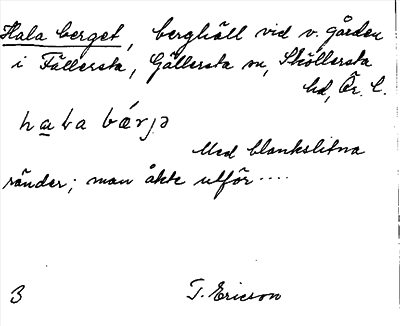 Hala berget, berghäll vid v. gården
i Fällersta, Gällersta sn, Sköllersta
hd, Ör. l.
ha̲la bárjə
Med blankslitna
ränder; man åkte utför....
3 T. Ericson